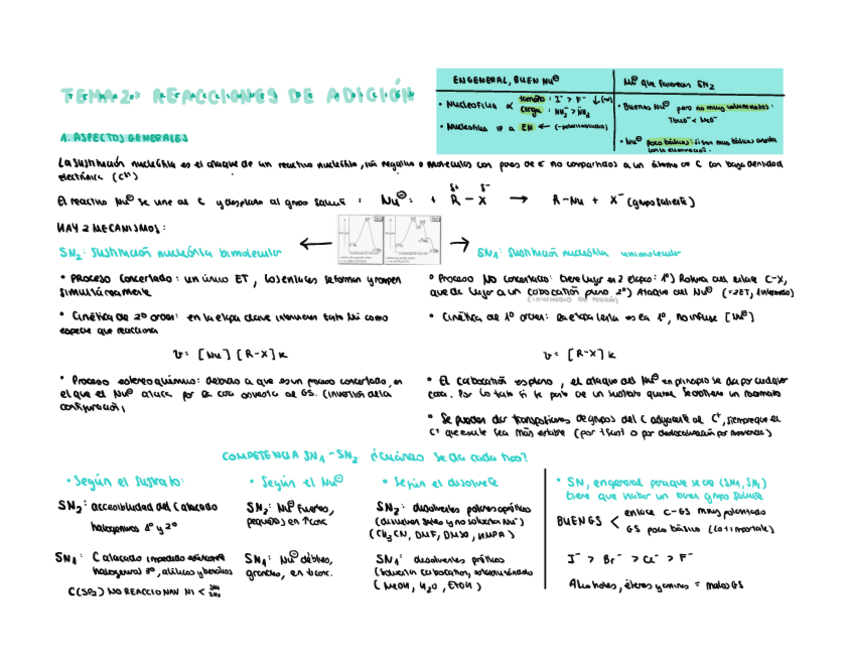 TEMA 2: REACCIONES DE ADICIÓN
EN GENERAL, BUEN Nu⊖
• Nucleofilia ∝ tamaño: I⁻ > F⁻
carga: NH₂⁻ > NH₃
• Nucleofilia if a EN ← (-polarizabilidad)
Nu⊖ que favorecen SN2
• Buenos Nu⊖ pero no muy voluminosos:
TBuO⁻ < MeO⁻
• Nu⊖ poco básicos: si son muy básicos
1. ASPECTOS GENERALES
La sustitución nucleófila es el ataque de un reactivo nucleófilo, ión negativo o moléculas con pares de e⁻ no compartidos a un átomo de C con baja densidad
electrónica (Cδ+)
El reactivo Nu⊖ se une al C y desplaza al grupo saliente: Nu⊖: + R - X → R-Nu + X⁻ (grupo saliente)
δ+ δ-
HAY 2 MECANISMOS:
SN2: Sustitución nucleófila bimolecular
• Proceso concertado: un único ET, los enlaces se forman y rompen
simultáneamente
• Cinética de 2º orden: en la etapa clave intervienen tanto Nu como
especie que reacciona
v = [Nu] [R-X] k
• Proceso estereoquímico: debido a que es un proceso concertado, en
el que el Nu⊖ ataca por la cara opuesta al GS. (inversión de la
configuración)
SN1: Sustitución nucleófila unimolecular
• Proceso NO concertado: tiene lugar en 2 etapas: 1º) Rotura del enlace C-X,
que da lugar a un carbocatión plano 2º) Ataque del Nu⊖ (=2ET, 1 intermedio)
• Cinética de 1º orden: la etapa lenta es la 1º, no influye [Nu⊖]
v = [R-X] k
• El carbocatión es plano, el ataque del Nu⊖ en principio se da por cualquier
cara. Por lo tanto si se parte de un sustrato quiral se obtiene un racemato
• Se pueden dar transposiciones de grupos del C adyacente al C⁺, siempre que el
C⁺ que resulte sea más estable (por + sust) o por deslocalización por resonancia)
COMPETENCIA SN1 - SN2 ¿Cuándo se da cada tipo?
• Según el sustrato:
SN2: accesibilidad del C atacado
halogenuros 1º y 2º
SN1: C atacado impedido
halogenuros 3º, alílicos y bencílicos
C(SP2) NO REACCIONAN NI <
SN1
SN2
• Según el Nu⊖
SN2: Nu⊖ fuertes,
pequeños, en ↑conc
SN1: Nu⊖ débiles,
grandes, en ↓conc.
• Según el disolvente
SN2: disolventes polares apróticos
(disuelven sales y no solvatan Nu⁻)
(CH₃CN, DMF, DMSO, HMPA)
SN1: disolventes próticos
(solvatan carbocatión, estabilizándolo)
(MeOH, H₂O, EtOH)
• SN, en general para que se dé (SN1, SN2)
tiene que haber un buen grupo saliente
BUEN GS <
enlace C-GS muy polarizado
GS poco básico (lo + importante)
I⁻ > Br⁻ > Cl⁻ > F⁻
Alcoholes, éteres y aminas = malos GS